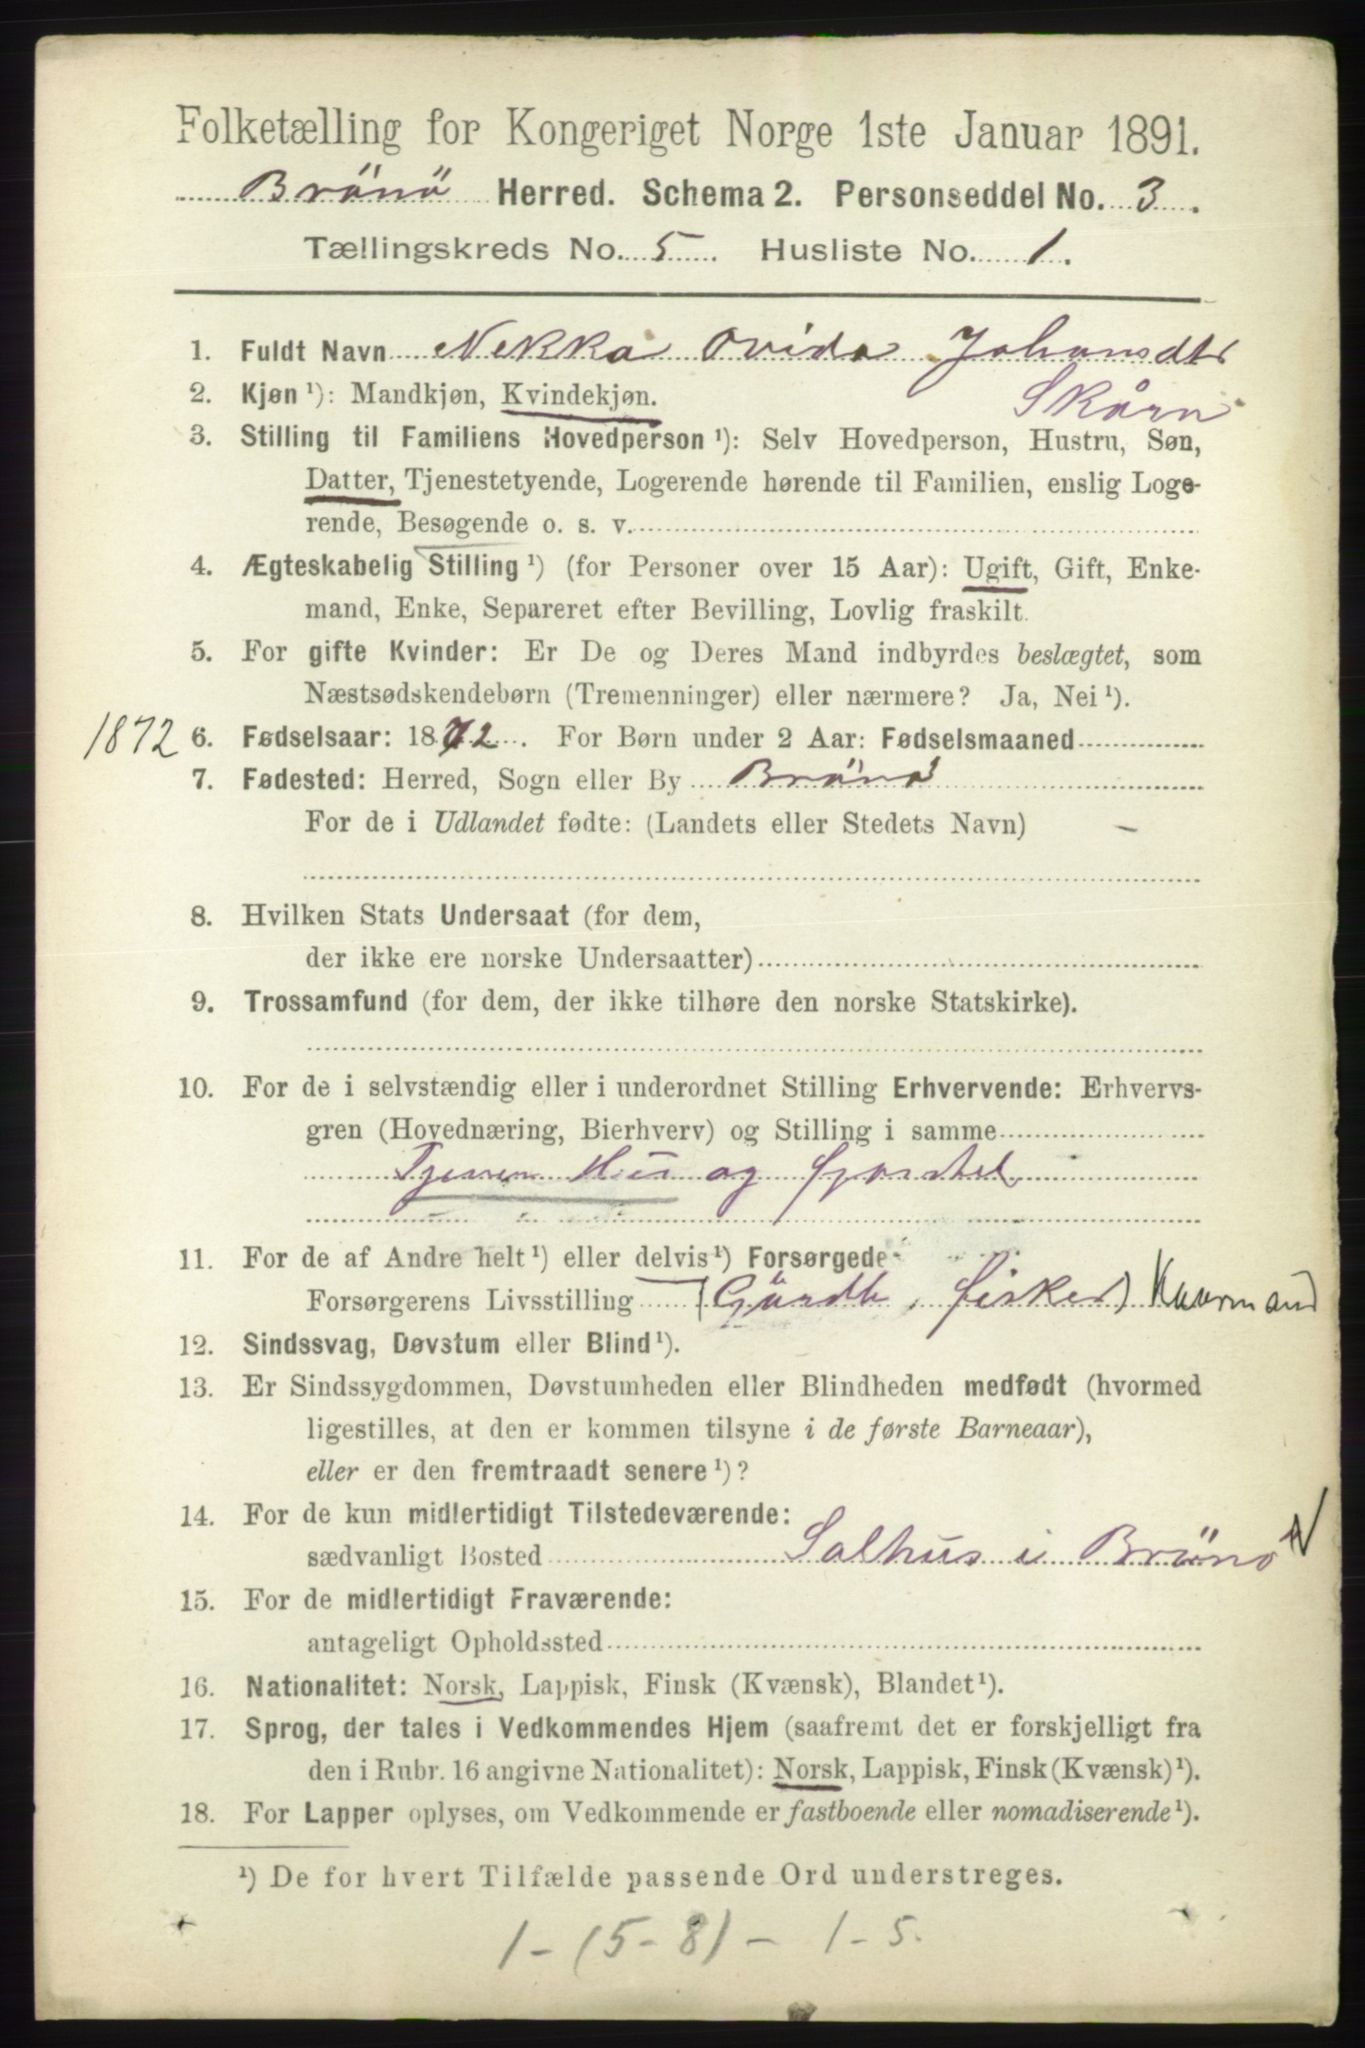 Folketælling for Kongeriget Norge 1ste Januar 1891.
Brönö Herred. Schema 2. Personseddel No. 3.
Tællingskreds No. 5. Husliste No. 1.
1. Fuldt Navn Nekka Ovida Johansdtr
Skårn
2. Kjøn ¹): Mandkjøn, Kvindekjøn.
3. Stilling til Familiens Hovedperson ¹): Selv Hovedperson, Hustru, Søn,
Datter, Tjenestetyende, Logerende hørende til Familien, enslig Loge-
rende, Besøgende o. s. v.
4. Ægteskabelig Stilling ¹) (for Personer over 15 Aar): Ugift, Gift, Enke-
mand, Enke, Separeret efter Bevilling, Lovlig fraskilt.
5. For gifte Kvinder: Er De og Deres Mand indbyrdes beslægtet, som
Næstsødskendebørn (Tremenninger) eller nærmere? Ja, Nei ¹).
1872 6. Fødselsaar: 1872. For Børn under 2 Aar: Fødselsmaaned
7. Fødested: Herred, Sogn eller By Brönö
For de i Udlandet fødte: (Landets eller Stedets Navn) –
8. Hvilken Stats Undersaat (for dem,
der ikke ere norske Undersaatter)
9. Trossamfund (for dem, der ikke tilhøre den norske Statskirke).
10. For de i selvstændig eller i underordnet Stilling Erhvervende: Erhvervs-
gren (Hovednæring, Bierhverv) og Stilling i samme
Hus og
11. For de af Andre helt ¹) eller delvis ¹) Forsørgede
Forsørgerens Livsstilling (Gårdb, fisker) Kaarmand
12. Sindssvag, Døvstum eller Blind ¹).
13. Er Sindssygdommen, Døvstumheden eller Blindheden medfødt (hvormed
ligestilles, at den er kommen tilsyne i de første Barneaar),
eller er den fremtraadt senere ¹)?
14. For de kun midlertidigt Tilstedeværende:
sædvanligt Bosted Salhus i Brönö
15. For de midlertidigt Fraværende:
antageligt Opholdssted
16. Nationalitet: Norsk, Lappisk, Finsk (Kvænsk), Blandet ¹).
17. Sprog, der tales i Vedkommendes Hjem (saafremt det er forskjelligt fra
den i Rubr. 16 angivne Nationalitet): Norsk, Lappisk, Finsk (Kvænsk) ¹).
18. For Lapper oplyses, om Vedkommende er fastboende eller nomadiserende ¹).
¹) De for hvert Tilfælde passende Ord understreges.
1-(5-8)-1-5.